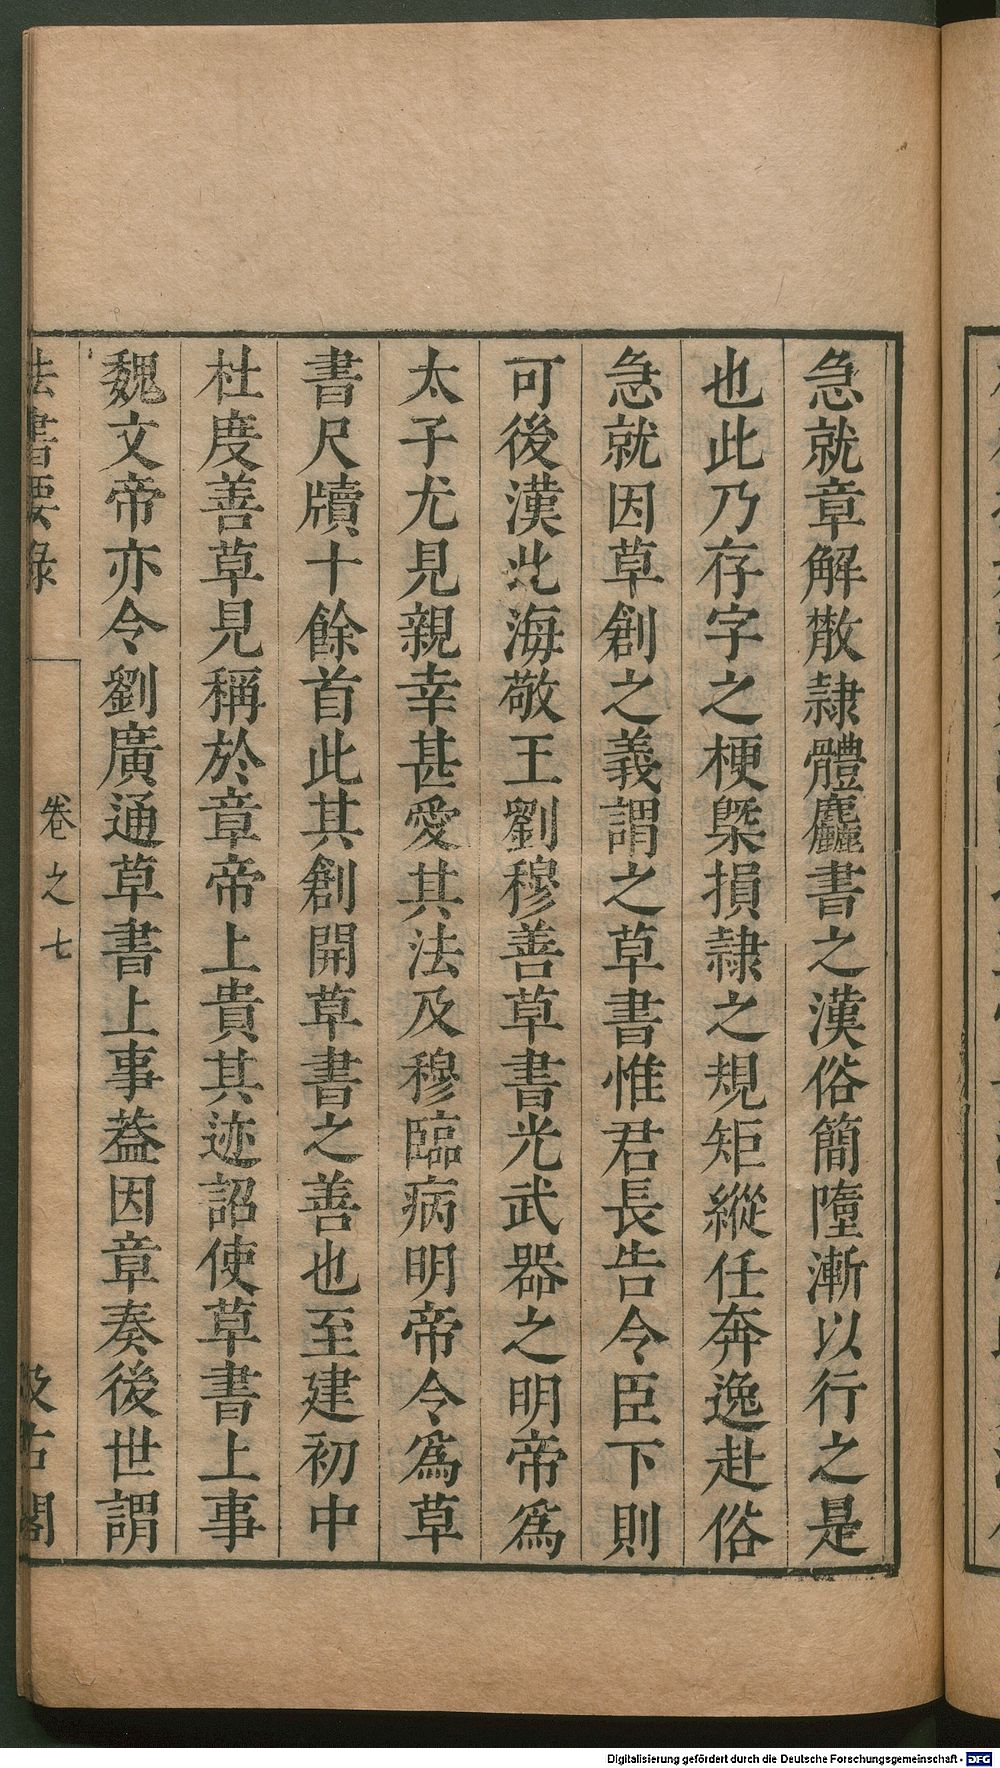 急就章解散隷體麤書之漢俗簡隋漸以行之是
也此乃存字之梗槩損隷之規矩縱任奔逸赴俗
急就因草創之義謂之草書惟君長告令臣下則
可後漢北海敬王劉穆善草書光武器之明帝爲
太子尤見親幸甚愛其法及穆臨病明帝令爲草
書尺牘十餘首此其創開草書之善也至建初中
杜度善草見稱於章帝上貴其迹詔使草書上事
魏文帝亦令劉廣通草書上事葢因章奏後世謂
法書要錄 卷之七 汲古閣
Digitalisierung gefördert durch die Deutsche Forschungsgemeinschaft - DFG